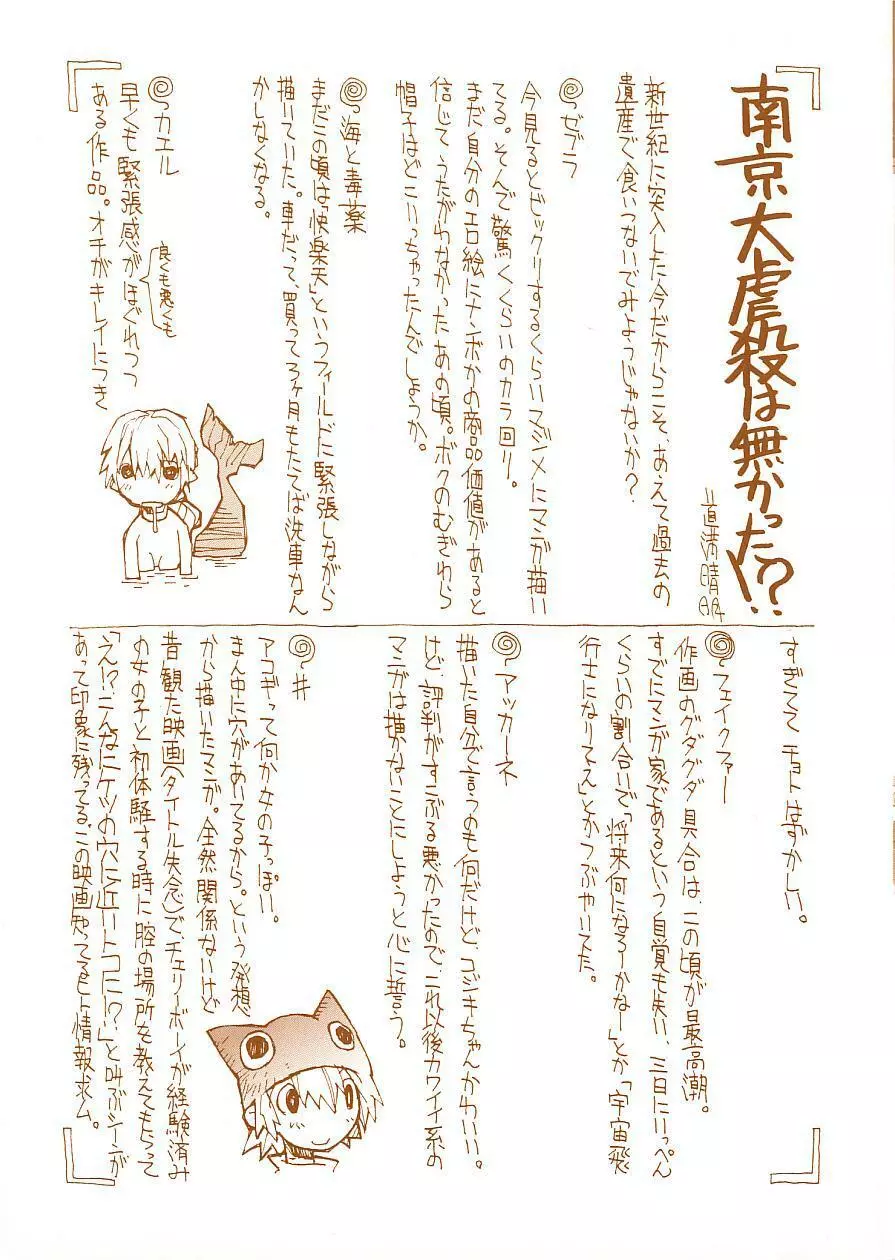 南京大虐殺は無かった!?
道満晴明
新世紀に突入した今だからこそ、あえて過去の
遺産で食いつないでみようじゃないか?
ゼブラ
今見るとビックリするくらいマジメにマンガ描い
てる。そんで驚くくらいのカラ回り。
まだ自分のエロ絵にナンボかの商品価値があると
信じてうたがわなかったあの頃。ボクのむぎわら
帽子はどこいっちゃったんでしょうか。
海と毒薬
まだこの頃は「快楽天」というフィールドに緊張しながら
描いていた。車だって、買って3ヶ月もたてば洗車なん
かしなくなる。
カエル
早くも緊張感がほぐれつつ
良くも悪くも
ある作品。オチがキレイにつき
すぎてて チョトはずかしい。
フェイクファー
作画のグダグダ具合は、この頃が最高潮。
すでにマンガ家であるという自覚も失い、三日にいっぺん
くらいの割合いで「将来何になろーかなー」とか「宇宙飛
行士になりてえ」とかつぶやいてた。
アッカーネ
描いた自分で言うのも何だけど、コジキちゃんかわいい。
けど、評判がすこぶる悪かったので、これ以後カワイイ系の
マンガは描かないことにしようと心に誓う。
#
アコギって何か女の子っぽい。
まん中に穴があいてるから。という発想
から描いたマンガ。全然関係ないけど
昔観た映画(タイトル失念)で、チェリーボーイが経験済み
の女の子と初体験する時に腔の場所を教えてもらって
「え!?こんなにケツの穴に近いトコに!?」と叫ぶシーンが
あって印象に残ってる。この映画知ってるヒト情報求ム。